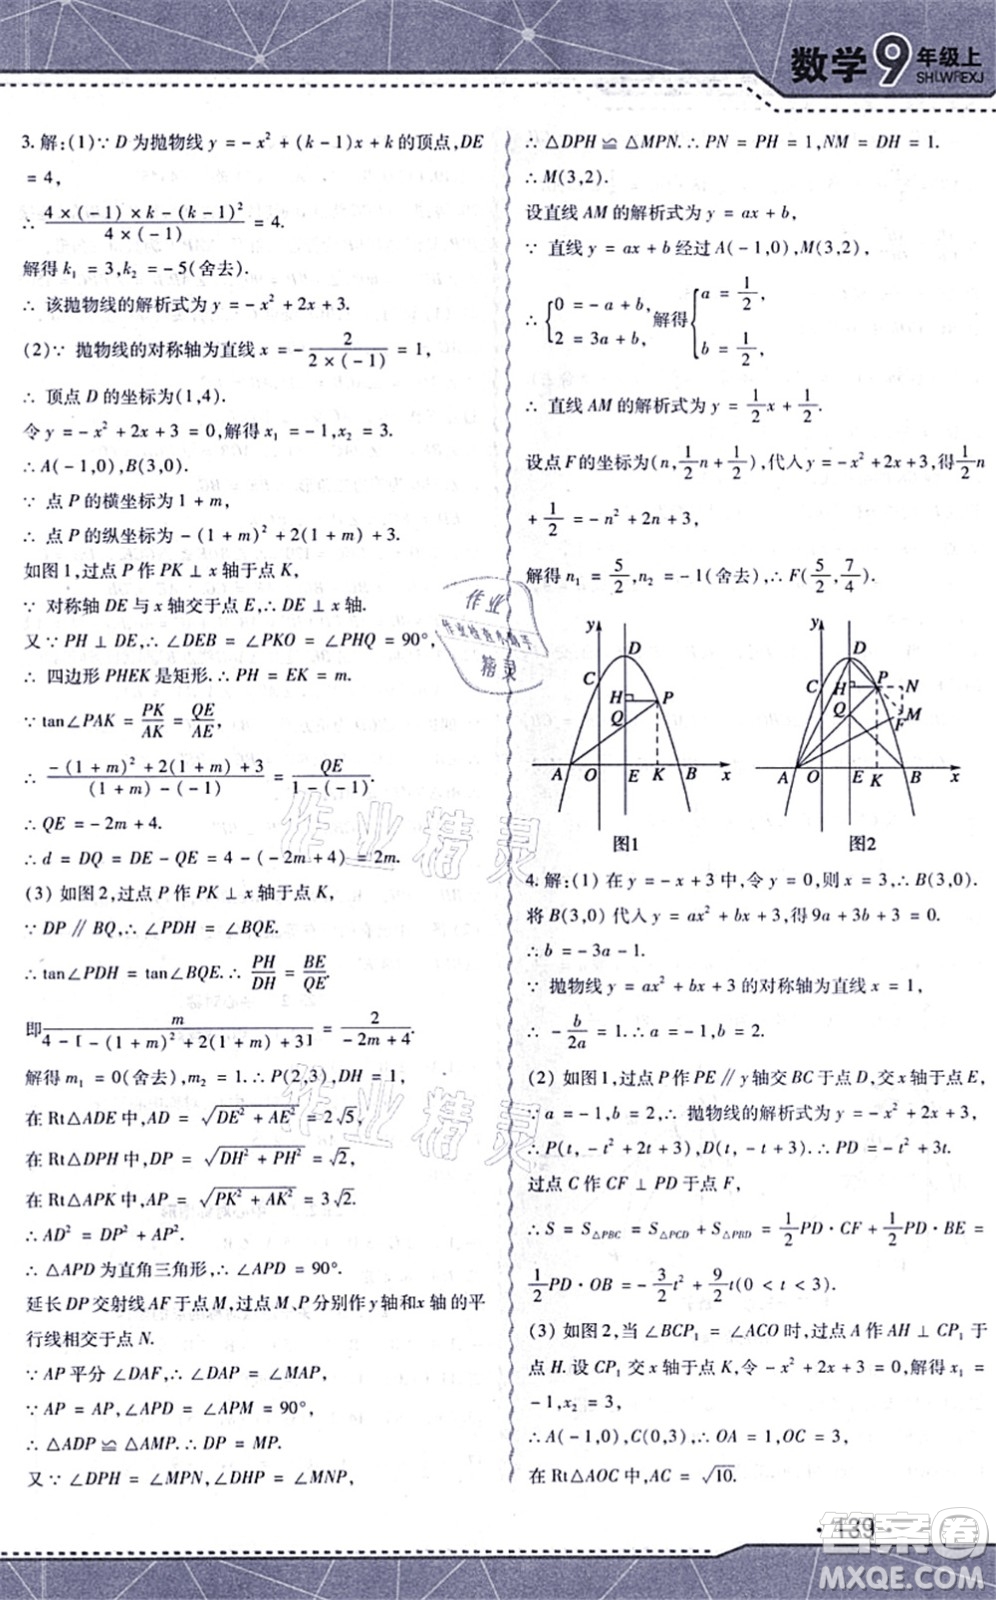 数学9年级上
SHUWREXJ
3.解:(1)∵ D 为抛物线 y = - x² + (k - 1)x + k 的顶点,DE
= 4,
∴ (4 × (-1) × k - (k - 1)²)/(4 × (-1)) = 4.
解得 k₁ = 3,k₂ = - 5(舍去).
∴ 该抛物线的解析式为 y = - x² + 2x + 3.
(2)∵ 抛物线的对称轴为直线 x = - 2/(2 × (-1)) = 1,
∴ 顶点 D 的坐标为(1,4).
令 y = - x² + 2x + 3 = 0,解得 x₁ = - 1,x₂ = 3.
∴ A( - 1,0),B(3,0).
∵ 点 P 的横坐标为 1 + m,
∴ 点 P 的纵坐标为 - (1 + m)² + 2(1 + m) + 3.
如图 1,过点 P 作 PK ⊥ x 轴于点 K,
∵ 对称轴 DE 与 x 轴交于点 E,∴ DE ⊥ x 轴.
又∵ PH ⊥ DE,∴ ∠DEB = ∠PKO = ∠PHQ = 90°,
∴ 四边形 PHEK 是矩形.∴ PH = EK = m.
∵ tan∠PAK = PK/AK = QE/AE,
∴ (-(1 + m)² + 2(1 + m) + 3)/((1 + m) - (-1)) = QE/(1 - (-1)).
∴ QE = - 2m + 4.
∴ d = DQ = DE - QE = 4 - ( - 2m + 4) = 2m.
(3) 如图 2,过点 P 作 PK ⊥ x 轴于点 K,
∵ DP ∥ BQ,∴ ∠PDH = ∠BQE.
∴ tan∠PDH = tan∠BQE.∴ PH/DH = BE/QE.
即 m/(4 - [ - (1 + m)² + 2(1 + m) + 3]) = 2/(-2m + 4).
解得 m₁ = 0(舍去),m₂ = 1.∴ P(2,3),DH = 1,
在 Rt△ADE 中,AD = √(DE² + AE²) = 2√5,
在 Rt△DPH 中,DP = √(DH² + PH²) = √2,
在 Rt△APK 中,AP = √(PK² + AK²) = 3√2.
∴ AD² = DP² + AP².
∴ △APD 为直角三角形,∴ ∠APD = 90°.
延长 DP 交射线 AF 于点 M,过点 M、P 分别作 y 轴和 x 轴 的 平
行线相交于点 N.
∵ AP 平分 ∠DAF,∴ ∠DAP = ∠MAP,
∵ AP = AP,∠APD = ∠APM = 90°,
∴ △ADP ≌ △AMP.∴ DP = MP.
又 ∵ ∠DPH = ∠MPN,∠DHP = ∠MNP,
∴ △DPH ≌ △MPN.∴ PN = PH = 1,NM = DH = 1.
∴ M(3,2).
设直线 AM 的解析式为 y = ax + b,
∵ 直线 y = ax + b 经过 A( - 1,0),M(3,2),
∴ {0 = - a + b, 2 = 3a + b, 解得 {a = 1/2, b = 1/2,
∴ 直线 AM 的解析式为 y = 1/2 x + 1/2.
设点 F 的坐标为(n, 1/2 n + 1/2),代入 y = - x² + 2x + 3,得 1/2 n
+ 1/2 = - n² + 2n + 3,
解得 n₁ = 5/2,n₂ = - 1(舍去),∴ F(5/2, 7/4).
y D C H P Q A O E K B x
图1
y D C H P N Q M F A O E K B x
图2
4.解:(1) 在 y = - x + 3 中,令 y = 0,则 x = 3,∴ B(3,0).
将 B(3,0) 代入 y = ax² + bx + 3,得 9a + 3b + 3 = 0.
∴ b = - 3a - 1.
∵ 抛物线 y = ax² + bx + 3 的对称轴为直线 x = 1,
∴ - b/2a = 1.∴ a = - 1,b = 2.
(2) 如图1,过点 P 作 PE ∥ y 轴交 BC 于点 D,交 x 轴于点 E,
∵ a = - 1,b = 2,∴ 抛物线的解析式为 y = - x² + 2x + 3.
∴ P(t, - t² + 2t + 3),D(t, - t + 3).∴ PD = - t² + 3t.
过点 C 作 CF ⊥ PD 于点 F,
∴ S = S△PBC = S△PCD + S△PBD = 1/2 PD · CF + 1/2 PD · BE =
1/2 PD · OB = - 3/2 t² + 9/2 t(0 < t < 3).
(3) 如图 2,当 ∠BCP₁ = ∠ACO 时,过点 A 作 AH ⊥ CP₁ 于
点 H.设 CP₁ 交 x 轴于点 K,令 - x² + 2x + 3 = 0,解得 x₁ =
- 1,x₂ = 3,
∴ A( - 1,0),C(0,3),∴ OA = 1,OC = 3.
在 Rt△AOC 中,AC = √10.
作业
作业检查小助手
精灵
作业精灵
作业精灵
· 139 ·
答案圈
MXQE.COM